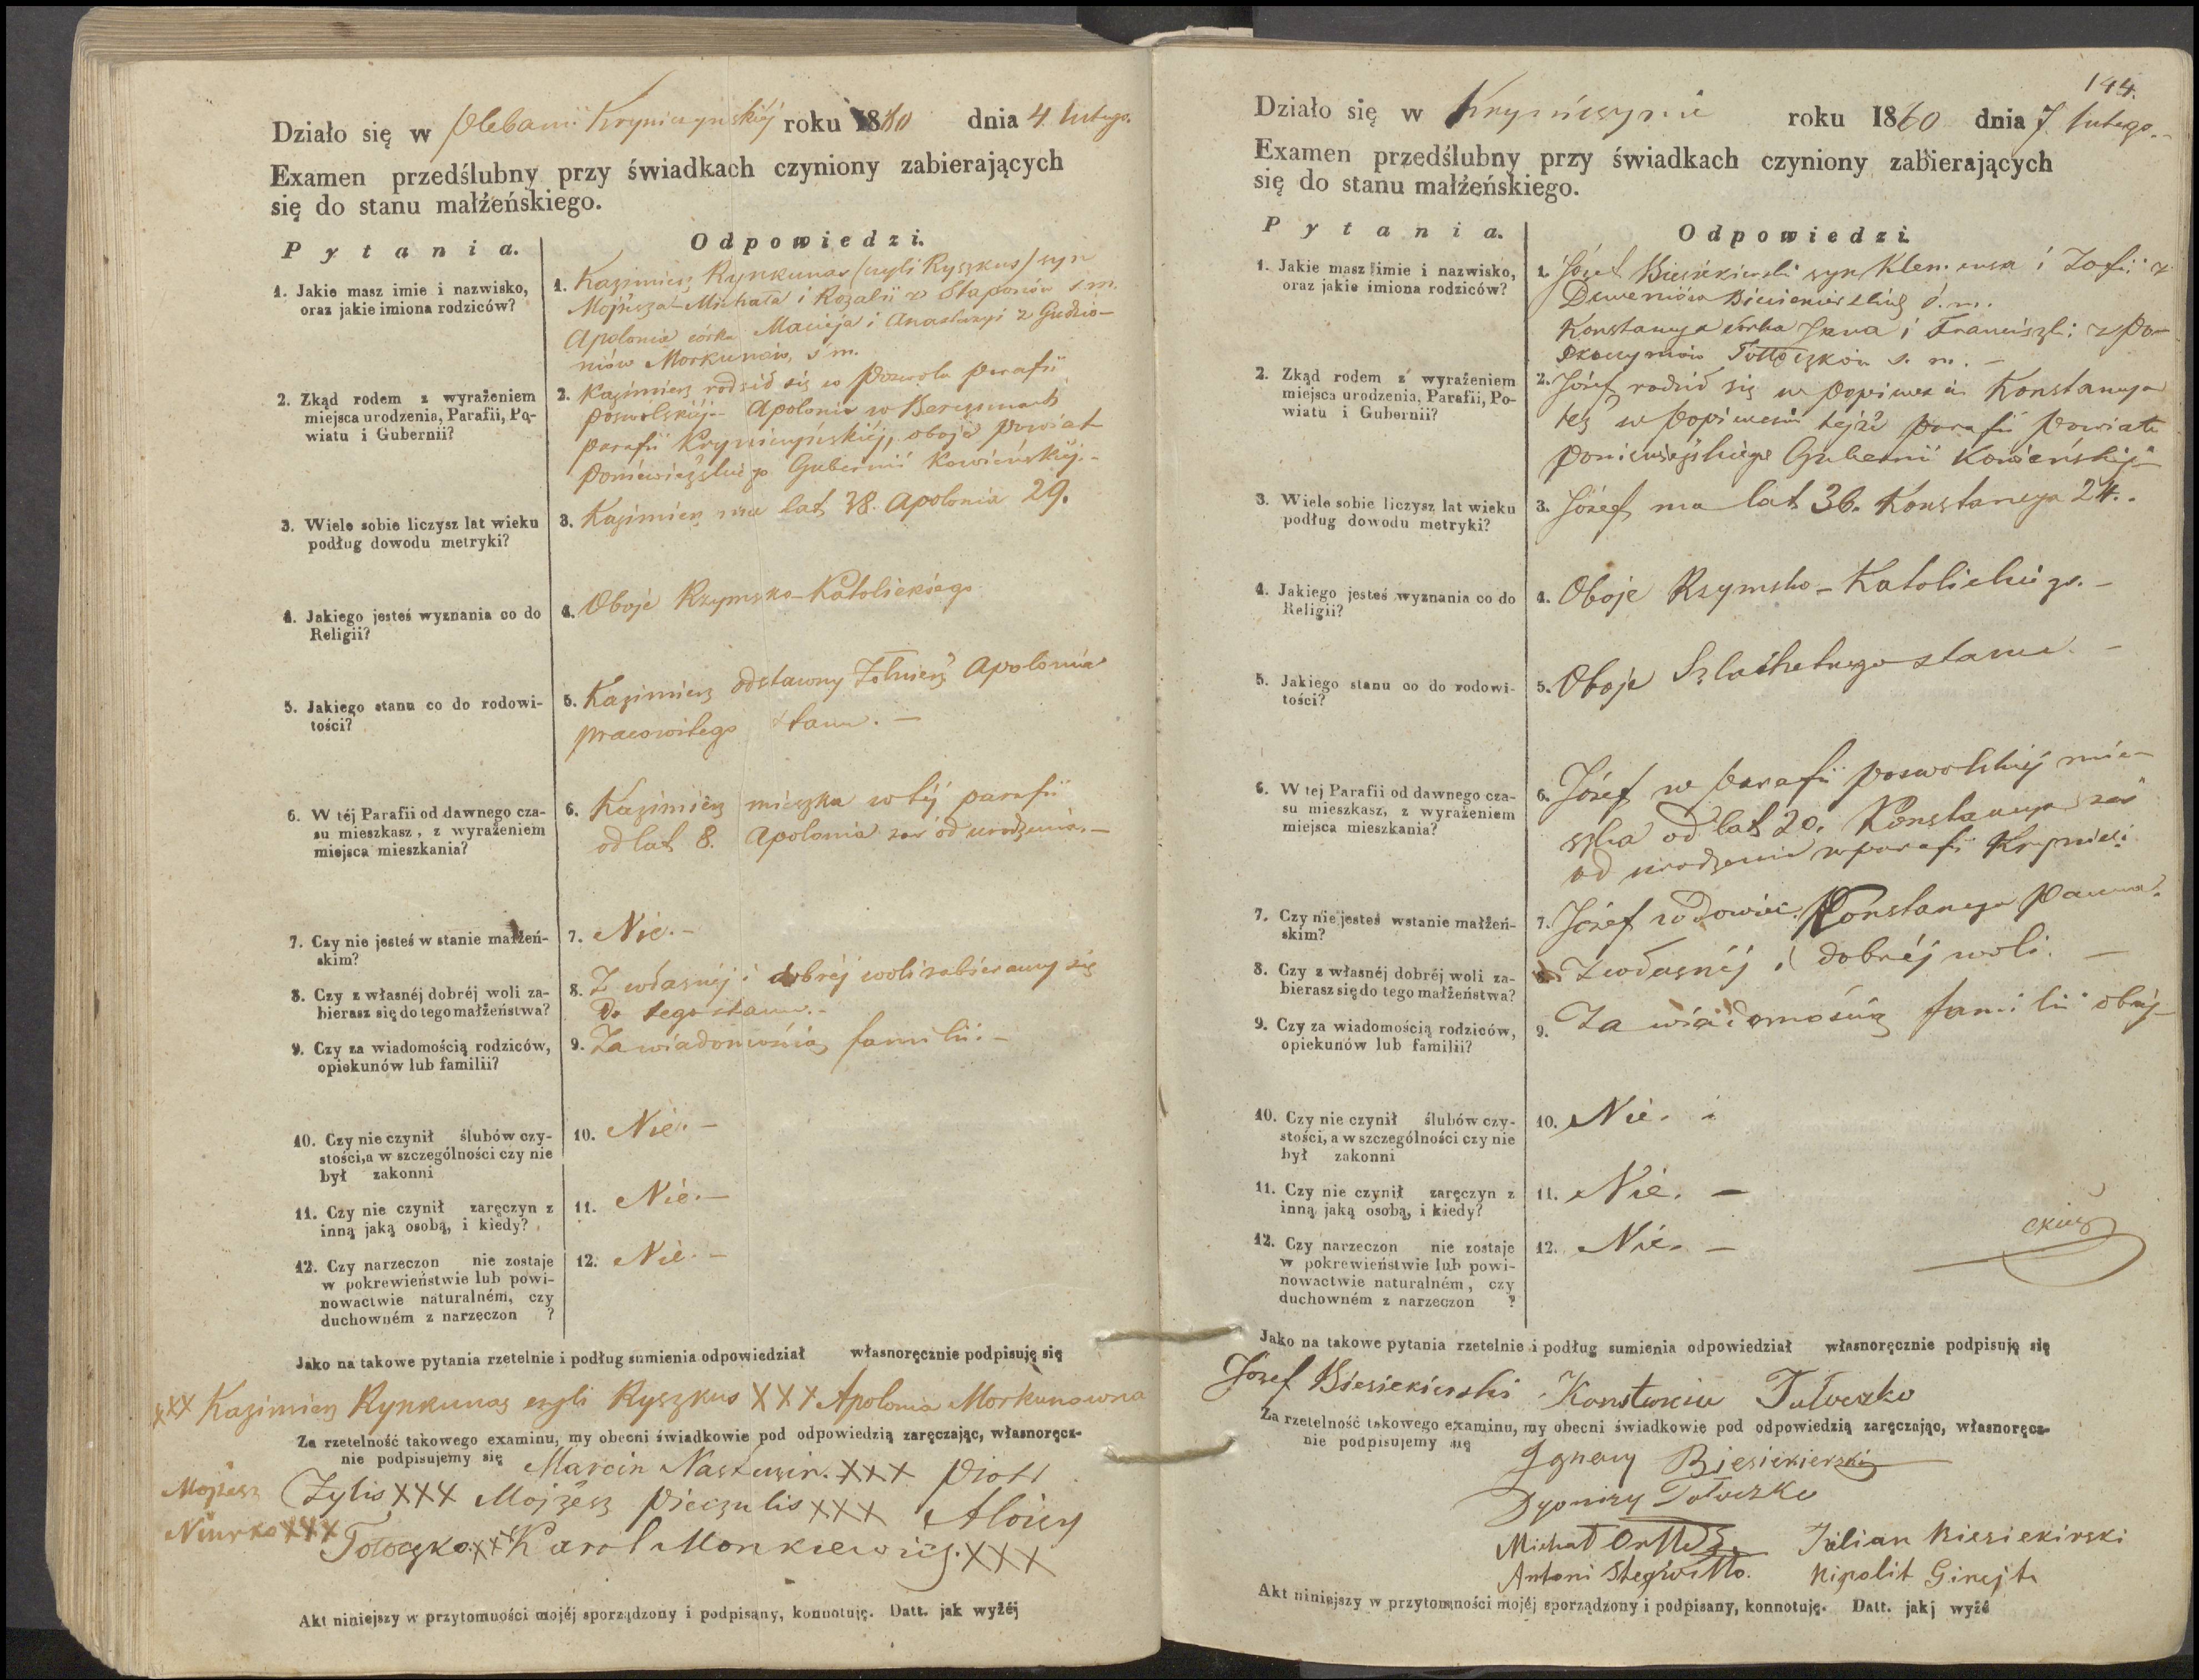 Działo się w Plebanii Kryniczyńskiéj roku 1860 dnia 4 lutego.
Examen przedślubny przy świadkach czyniony zabierających
się do stanu małżeńskiego.
Pytania. Odpowiedzi.
1. Jakie masz imie i nazwisko,
oraz jakie imiona rodziców?
1. Kazimierz Rynkunas (czyli Ryszkus) syn
Mojżesza-Michała i Rozalii z Staponów ś.m.
Apolonia córka Macieja i Anastazyi z Gudzio-
niów Morkunów, ś m.
2. Zkąd rodem z wyrażeniem
miejsca urodzenia, Parafii, Po-
wiatu i Gubernii?
2. Kazimierz rodził się w Poswolu parafii
poswolskiéj- Apolonia w
parafii Kryniczyńskiéj, oboje powiat
Poniewiezskiego Gubernii Kowieńskiéj.-
3. Wiele sobie liczysz lat wieku
podług dowodu metryki?
3. Kazimierz ma lat 38. Apolonia 29.
4. Jakiego jesteś wyznania co do
Religii?
4. Oboje Rzymsko-Katolickiego
5. Jakiego stanu co do rodowi-
tości?
5. Kazimierz odstawny Żołnierz Apolonia
pracowitego stanu. -
6. W téj Parafii od dawnego cza-
su mieszkasz, z wyrażeniem
miejsca mieszkania?
6. Kazimierz mieszka w téj parafii
od lat 8. Apolonia zaś od urodzenia.-
7. Czy nie jesteś w stanie małżeń-
skim?
7. Nie.-
8. Czy z własnéj dobréj woli za-
bierasz się do tego małżeństwa?
8. Z własnéj i dobréj woli zabieramy się
do tego stanu.-
9. Czy za wiadomością rodziców,
opiekunów lub familii?
9. Za wiadomością familii.-
10. Czy nie czynił ślubów czy-
stości, a w szczególności czy nie
był zakonni
10. Nie.-
11. Czy nie czynił zaręczyn z
inną jaką osobą, i kiedy?
11. Nie.-
12. Czy narzeczon nie zostaje
w pokrewieństwie lub powi-
nowactwie naturalném, czy
duchowném z narzeczon ?
12. Nie.-
Jako na takowe pytania rzetelnie i podług sumienia odpowiedział własnoręcznie podpisuję się
XXX Kazimierz Rynkunas czyli Ryszkus XXX Apolonia Morkunowna
Za rzetelność takowego examinu, my obecni świadkowie pod odpowiedzią zaręczając, własnoręcz-
nie podpisujemy się Marcin XXX Piotr
Mojżesz Żylis XXX Mojżesz Pieczulis XXX Aloizy
XXX Tołoczko XXX Karol Monkiewicz. XXX
Akt niniejszy w przytomności mojéj sporządzony i podpisany, konnotuję. Datt. jak wyżéj
144.
Działo się w Kryniczynie roku 1860 dnia 7 lutego.-
Examen przedślubny przy świadkach czyniony zabierających
się do stanu małżeńskiego.
Pytania. Odpowiedzi
1. Jakie masz imie i nazwisko,
oraz jakie imiona rodziców?
1. Józef Biesiekierski syn Klemensa i Zofii z
Biesiekierskich ś.m.
Konstancya córka Jana i Franciszki z Po-
Tołłoczków ś. m. -
2. Zkąd rodem z wyrażeniem
miejsca urodzenia, Parafii, Po-
wiatu i Gubernii?
2. Józef rodził się w Popiwesu Konstancya
też w Popiwesu tejże parafii Powiatu
Poniewiezskiego Gubernii Kowieńskiéj
3. Wiele sobie liczysz lat wieku
podług dowodu metryki?
3. Józef ma lat 36. Konstancya 24.
4. Jakiego jesteś wyznania co do
Religii?
4. Oboje Rzymsko-Katolickiego.-
5. Jakiego stanu co do rodowi-
tości?
5. Oboje Szlachetnego stanu. -
6. W tej Parafii od dawnego cza-
su mieszkasz, z wyrażeniem
miejsca mieszkania?
6. Józef w parafii poswolskiéj mie-
szka od lat 20. Konstancya zaś
od urodzenia w parafii Krynicz:
7. Czy nie jesteś wstanie małżeń-
skim?
7. Józef wdowiec. Konstancya Panna.
8. Czy z własnéj dobréj woli za-
bierasz się do tego małżeństwa?
8. Z własnéj i dobréj woli. -
9. Czy za wiadomością rodziców,
opiekunów lub familii?
9. Za wiadomością familii obój-
10. Czy nie czynił ślubów czy-
stości, a w szczególności czy nie
był zakonni
10. Nie.
11. Czy nie czynił zaręczyn z
inną jaką osobą, i kiedy?
11. Nie. -
12. Czy narzeczon nie zostaje
w pokrewieństwie lub powi-
nowactwie naturalném, czy
duchowném z narzeczon ?
12. Nie. -
Jako na takowe pytania rzetelnie i podług sumienia odpowiedział własnoręcznie podpisuję się
Józef Biesiekierski Konstancia Tołoczko
Za rzetelność takowego examinu, my obecni świadkowie pod odpowiedzią zaręczając, własnoręcz-
nie podpisujemy się
Ignacy Biesiekierski
Dyonizy Tołoczko
Michał Julian Biesiekirski
Antoni Stegwiłło. Hipolit Girejt
Akt niniejszy w przytomności mojéj sporządzony i podpisany, konnotuję. Datt. jakj wyżé